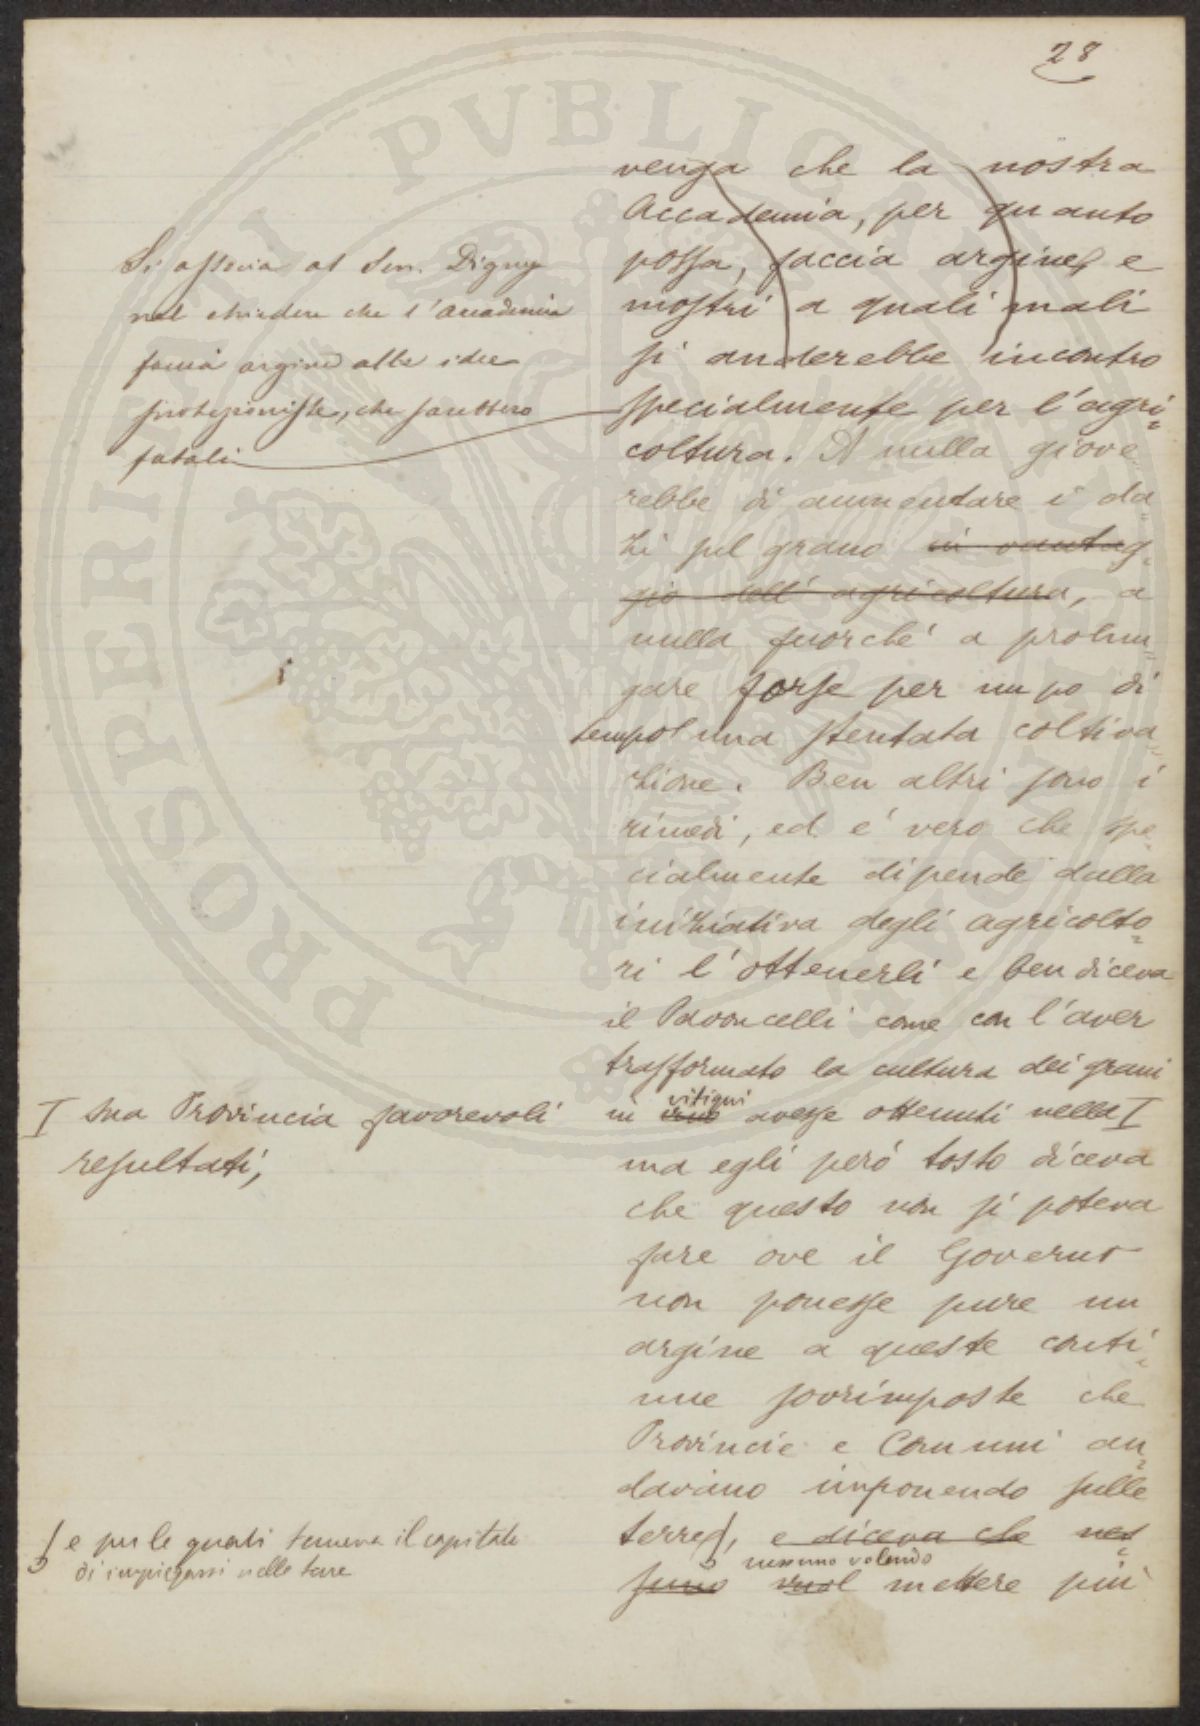 28
venga che la nostra
Accademia, per quanto
possa, faccia argine, e
mostri a quali mali
si anderebbe incontro
specialmente per l'agri=
coltura. A nulla giove
rebbe di aummentare i da
zi pel grano in vantag=
gio dell'agricoltura, a
nulla fuorché a prolun
gare forse per un po di
tempo una stentata coltiva
zione. Ben altri sono i
rimedi, ed é vero che spe=
cialmente dipende dalla
iniziativa degli agricolto=
ri l'ottenerli e ben diceva
il Pavoncelli come con l'aver
trasformato la cultura dei grani
vitigni
in uve avesse ottenuti nella I
ma egli peró tosto diceva
che questo non si poteva
fare ove il Governo
non ponesse pure un
argine a queste conti=
nue sovrimposte che
Provincie e Comuni an=
davano imponendo sulle
terre, e diceva che nes=
nessuno volendo
suno vuol mettere piú
Si associa al Sen. Digny
nel chiedere che l'Accademia
faccia argine alle idee
protezioniste, che sarebbero
fatali
I sua Provincia favorevoli
resultati,
e per le quali temeva il capitale
di impiegarsi nelle terre
PROSPERITATI PVBLICAE AVGENDAE